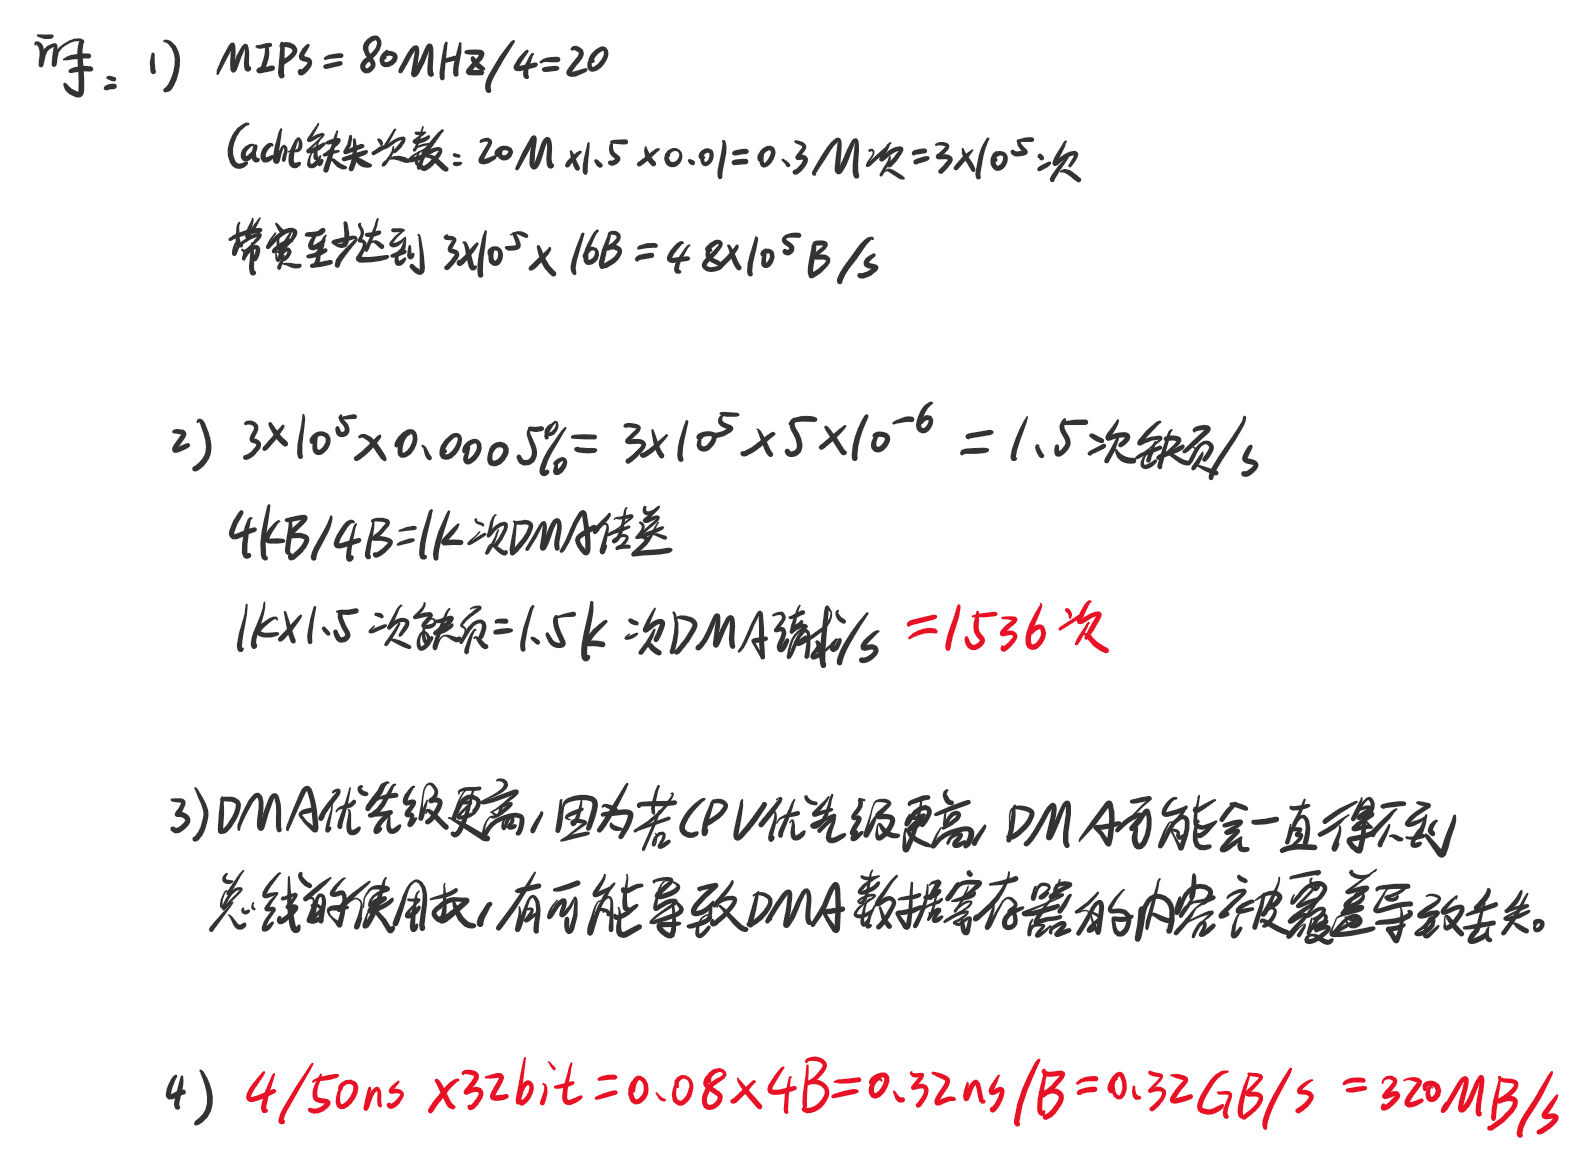 解：1) MIPS = 80MHz/4=20
Cache缺失次数：20M×1.5×0.01=0.3M次=3×10⁵次
带宽至少达到 3×10⁵×16B=48×10⁵B/s
2) 3×10⁵×0.0005%=3×10⁵×5×10⁻⁶=1.5次缺页/s
4KB/4B=1K次DMA传送
1K×1.5次缺页=1.5K次DMA请求/s =1536次
3)DMA优先级更高，因为若CPU优先级更高，DMA可能会一直得不到
总线的使用权，有可能导致DMA数据寄存器的内容被覆盖导致丢失。
4) 4/50ns ×32bit=0.08×4B=0.32ns/B=0.32GB/s =320MB/s